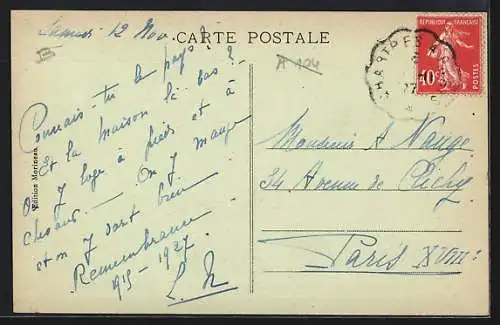 CARTE POSTALE
Samedi 12 Nov.
B
A 104
Connais-tu le pays?
Et la maison là bas?
On y loge à pieds et à
cheval — On y mange
et on y dort bien
Remembrance
1915-1927.
L. N
Edition Morineau
REPUBLIQUE FRANÇAISE
10c
POSTES
CHARTRES
27
Monsieur A Nauge
34 Avenue de Clichy
Paris XVIII: